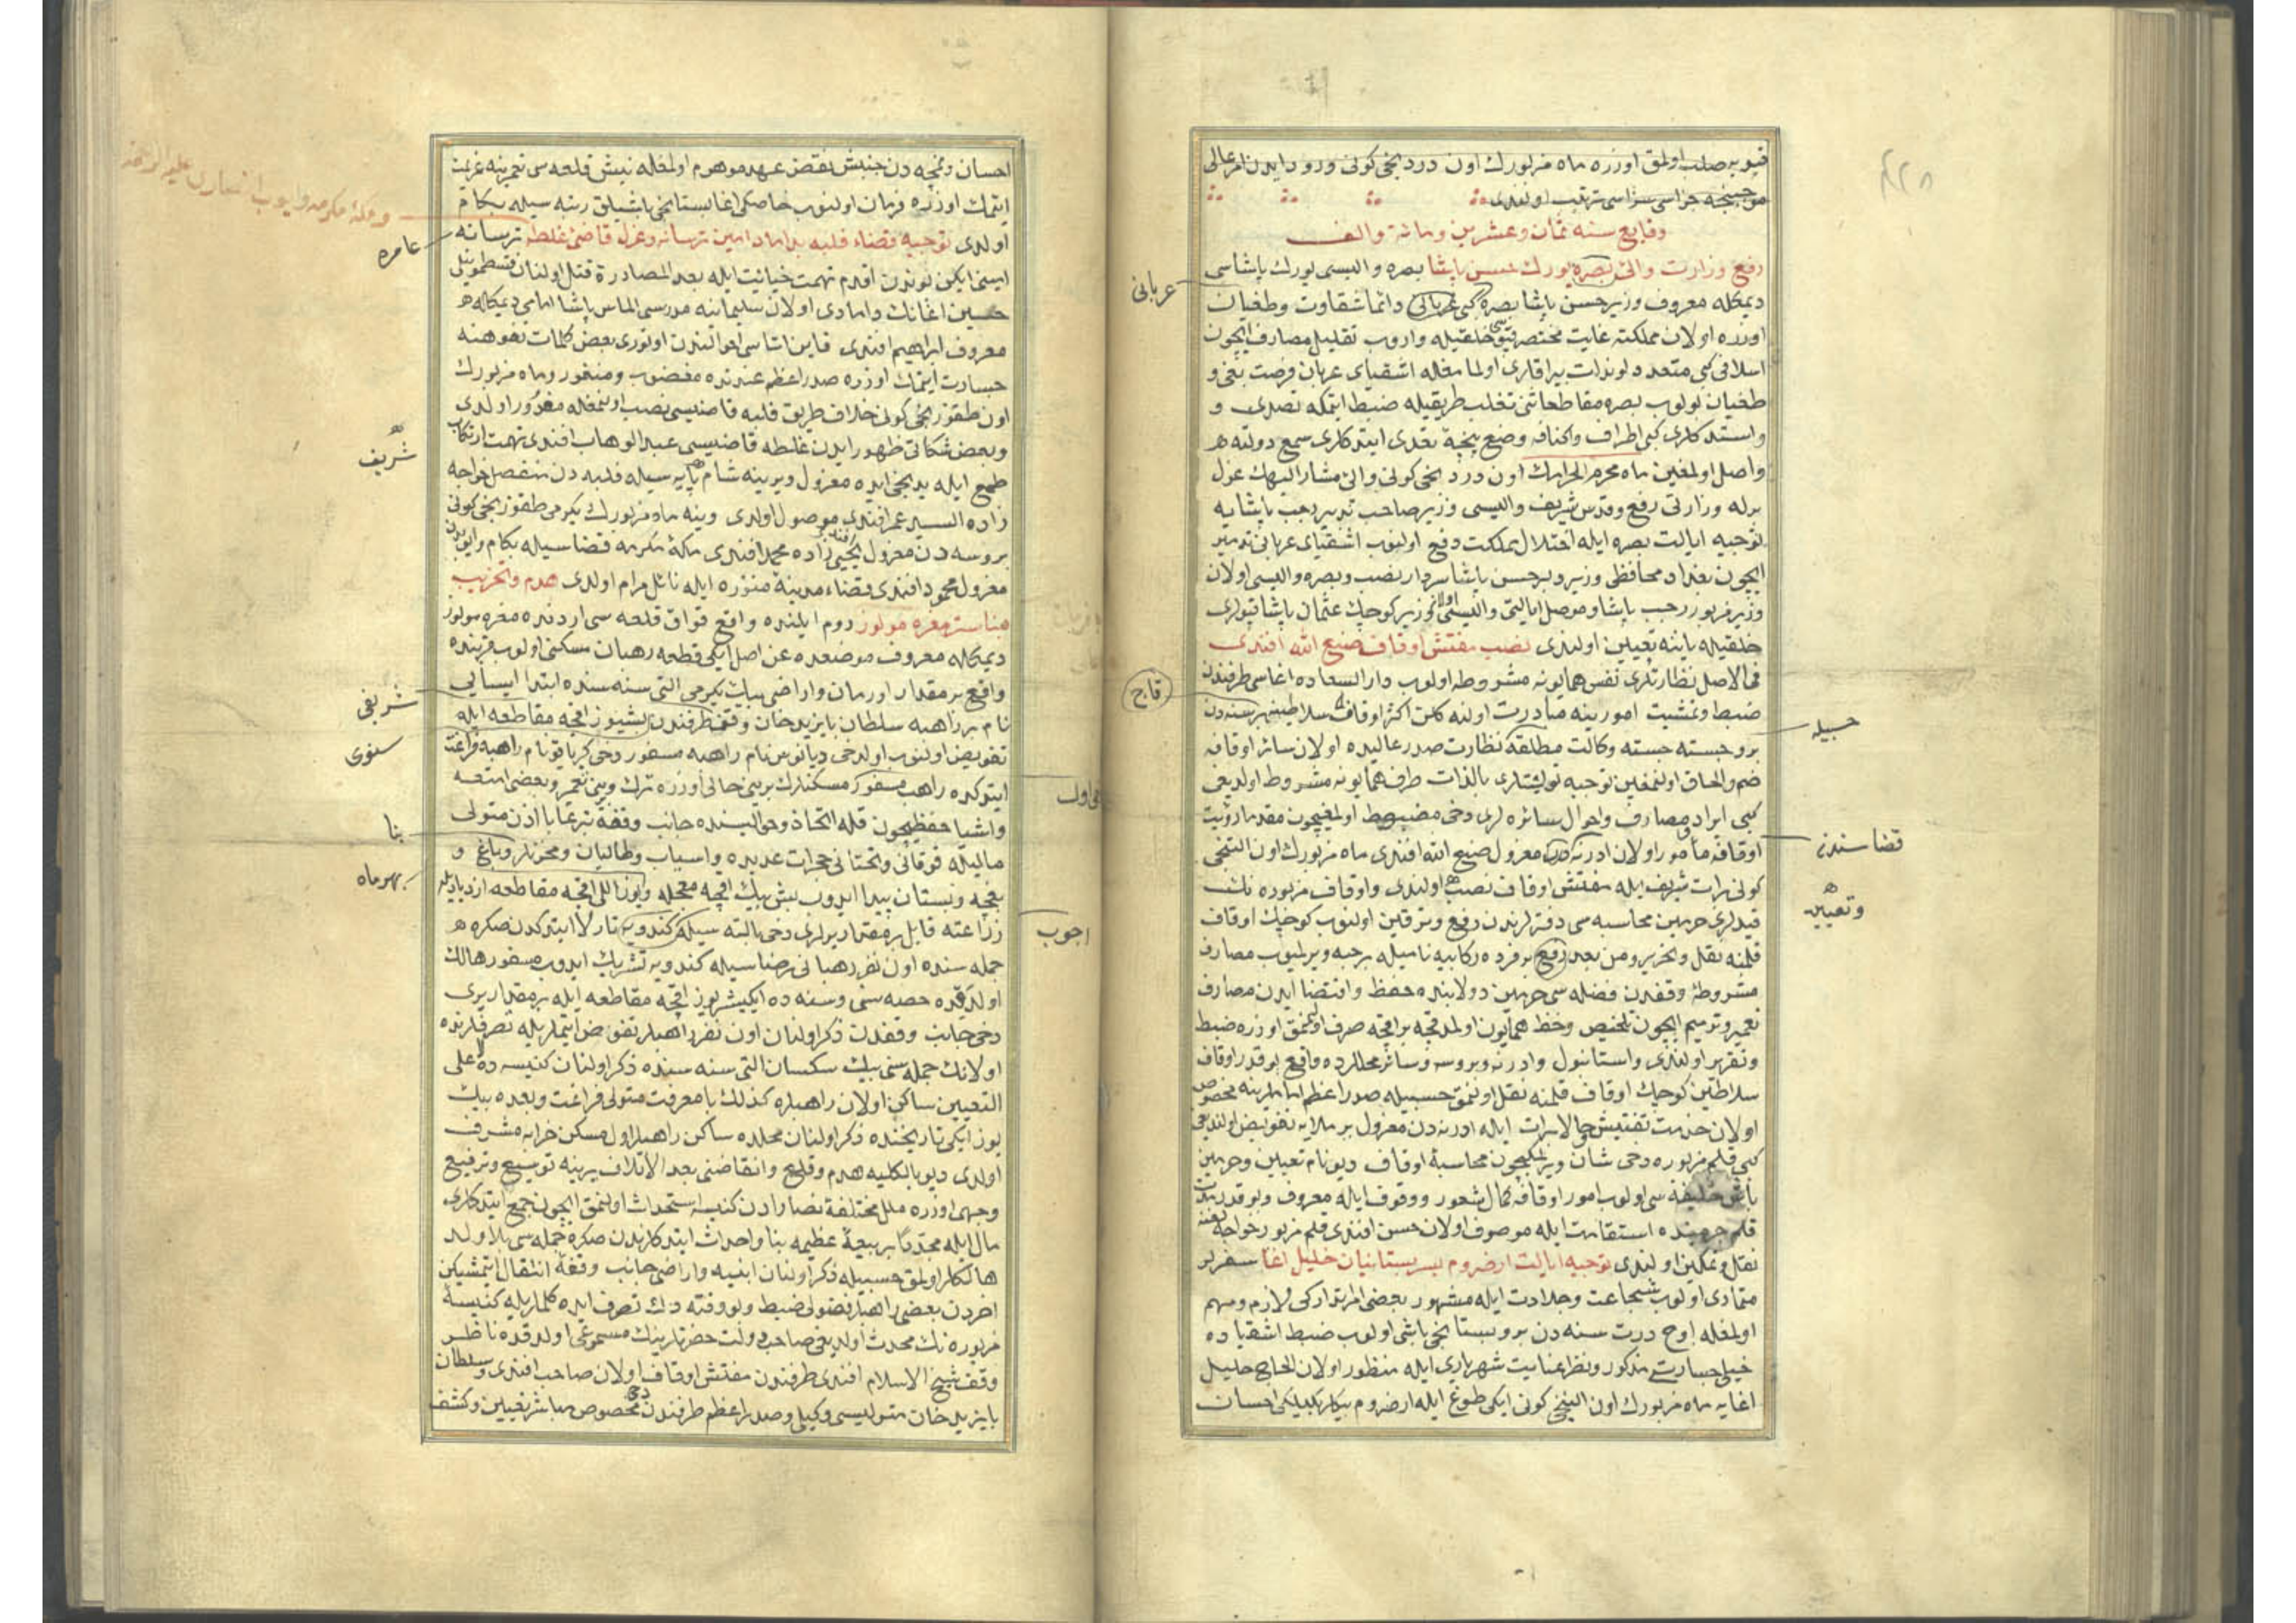 قپویه صلب اولنمق اوزره ماه مزبورك اون دردنجی كونی ورود ایدن امر عالی
موجبنجه جزاسی سزاسی ترتیب اولندی
وقایع سنه ثمان وعشرین ومائة والف
رفع وزارت والئ بصره یورك حسن پاشا بصره والیسی یورك پاشا
دیمكله معروف وزیر حسن پاشا بصره كبی عربانی دائما شقاوت وطغیان
اوزره اولان مملكته غایت مختصر قپوسی خلقیله واروب تقلیل مصارف ایچون
اسلافی كبی متعدد لوندات بیراقلری اولمامغله اشقیای عربان فرصت بغی و
طغیان بولوب بصره مقاطعاتنی تغلب طریقیله ضبط ایتمكه تصدی و
واستدكلری كبی اطراف واكنافه وضع پنجهٔ تعدی ایتدكلری سمع دولته
واصل اولمغین ماه محرم الحرامك اون دردنجی كونی والئ مشار الیهك عزل
برله وزارتی رفع وقدس شریف والیسی وزیر صاحب تدبیر رجب پاشایه
توجیه ایالت بصره ایله اختلال مملكت دفع اولنوب اشقیای عربانی تدمیر
ایچون بغداد محافظی وزیر دلیر حسن پاشا سردار نصب وبصره والیسی اولان
وزیر مزبور رجب پاشا وموصل ایالتی والیسی اولان وزیر كوچك عثمان پاشا قپولری
خلقیله یاننه تعیین اولندی نصب مفتش اوقاف صنع الله افندی
فی الاصل نظارتلری نفس همایونه مشروطه اولوب دار السعاده اغاسی طرفندن
ضبط وتمشیت امورینه مبادرت اولنه كلن اكثر اوقاف سلاطین بهر سنه دن
برو جسته جسته وكالت مطلقه نظارت صدر عالیده اولان سائر اوقافه
ضم والحاق اولنمغین توجیه تولیتلری بالذات طرف همایونه مشروط اولدیغی
كبی ایراد ومصارف واحوال سائره لری دخی مضبوط اولمغیچون مقدما رؤیت
اوقافه مأمور اولان ادرنه دن معزول صنع الله افندی ماه مزبورك اون التنجی
كونی برات شریف ایله مفتش اوقاف نصب اولندی واوقاف مزبوره نك
قیدلری حرمین محاسبه سی دفترلرندن رفع وترقین اولنوب كوچك اوقاف
قلمنه نقل وتحریر ومن بعد رفع بر فرده ركابیه نامیله بر حبه ویرلمیوب مصارف
مشروطهٔ وقفدن فضله سی حرمین دولابنده حفظ واقتضا ایدن مصارف
تعمیر وترمیم ایچون تلخیص وخط همایون اولمدقچه بر اقچه صرف اولنمامق اوزره ضبط
وتقریر اولندی واستانبول وادرنه وبروسه وسائر محللرده واقع بو قدر اوقاف
سلاطین كوچك اوقاف قلمنه نقل اولنمق حسبیله صدر اعظم امامارینه مخصوص
اولان خدمت تفتیش حالا برات ایله ادرنه دن معزول بر ملایه تفویض اولندیغی
كبی قلم مزبوره دخی شان ویرلمكیچون محاسبهٔ اوقاف دیو نام تعیین وحرمین
باش خلیفه سی اولوب امور اوقافه كمال شعور ووقوف ایله معروف وبو قدر مدت
قلم حرمینده استقامت ایله موصوف اولان حسن افندی قلم مزبور خواجه لغنه
نقل وتمكین اولندی توجیه ایالت ارضروم بسر بستانیان خلیل اغا سفرلر
متمادی اولوب شجاعت وجلادت ایله مشهور بعضی امرا تداركی لازم ومهم
اولمغله اوچ درت سنه دن برو بستانجی باشی اولوب ضبط اشقیاده
خیلی جسارتی مذكور ونظر عنایت شهریاری ایله منظور اولان الحاج خلیل
اغایه ماه مزبورك اون التنجی كونی ایكی طوغ ایله ارضروم بیكلربكیلیكی احسان
عربانی
قاج
حسبیله
قضاسندن
وتعیین
احسان ونمچه دن جنبش نقض عهد موهوم اولمغله نیش قلعه سی تعمیرینه عزیمت
ایتمك اوزره فرمان اولنوب خاصكی اغا بستانجی باشیلق رتبه سیله بكام
اولدی توجیه قضاء فلبه بداماد امین ترسانه وعزل قاضئ غلطه ترسانه
امینی ایكن بوندن اقدم تهمت خیانت ایله بعد المصادرة قتل اولنان قسطمونیلی
حسین اغانك دامادی اولان سلیمانیه مدرسی الماس پاشا امامی دیمكله
معروف ابراهیم افندی قاین اتاسی احوالندن اوتوری بعض كلمات تفوهنه
جسارت ایتمك اوزره صدر اعظم عندنده مغضوب ومنفور وماه مزبورك
اون طقوزنجی كونی خلاف طریق فلبه قاضیسی نصب اولنمغله مغدور اولدی
وبعض شكاتی ظهور ایدن غلطه قاضیسی عبد الوهاب افندی تهمت ارتكاب
طمع ایله یدنجی ایده معزول ویرینه شام پایه سیله فلبه دن منفصل خواجه
زاده السید عمر افندی موصول اولدی وینه ماه مزبورك یكرمی طقوزنجی كونی
بروسه دن معزول یحیی افندی زاده محمد افندی مكهٔ مكرمه قضاسیله بكام وایوبدن
معزول محمود افندی قضاء مدینهٔ منوره ایله نائل مرام اولدی هدم وتخریب
مناستر مغره مولوز روم ایلنده واقع قواق قلعه سی اردنده مغره مولوز
دیمكله معروف موضعده عن اصل ایكی قطعه رهبان مسكنی اولوب قربنده
واقع بر مقدار اورمان واراضی بیك یكرمی التی سنه سنده ابتدا ایسایی
نام بر راهبه سلطان بایزید خان وقفی طرفندن بشیوز اقچه مقاطعه ایله
تفویض اولنوب اولدخی دیانوس نام راهبه مسفور دخی كریاقو نام راهبه فراغت
ایتدكده راهب مسفور مسكنلرك برینی حالی اوزره ترك وبرین تعمیر وبعضی امتعه
واشیا حفظیچون قله اتخاذ وحوالیسنده جانب وقفه تبرعا باذن متولی
مالیله فوقانی وتحتانی حجرات عدیده واسیاب وطالیان ومخزنلر وباغ و
بغچه وبستان پیدا ایدوب بش بیك اقچه معجله ویوز اللی اقچه مقاطعه ازدیادیله
زراعته قابل بر مقدار یرلری دخی بالته سیله كندویه تارلا ایتدكدن صكره
جمله سنده اون نفر رهبانی رضاسیله كندویه تشریك ایدوب مسفور هالك
اولدقده حصه سنی وسنه ده ایكیشر یوز اقچه مقاطعه ایله بر مقدار یری
دخی جانب وقفدن ذكر اولنان اون نفر راهبلر تفویض ایتمكله تصرفلرنده
اولانك جمله سنی بیك سكسان التی سنه سنده ذكر اولنان كنیسه ده علی
التعیین ساكن اولان راهبلره كذلك بامعرفت متولی فراغت وبعده بیك
یوز ایكی تاریخنده ذكر اولنان محلده ساكن راهبلر اول مسكن خرابه مشرف
اولدی دیو بالكلیه هدم وقلع وانقاضنی بعد الاتلاف یرینه توسیع وترفیع
وجهی اوزره ملل مختلفهٔ نصارادن كنیسه استحداث اولنمق ایچون جمع ایتدكلری
مال ایله مجددا بر بیعهٔ عظیمه بنا واحداث ایتدكلرندن صكره جمله سی بلا ولد
هالكلر اولمق حسبیله ذكر اولنان ابنیه واراضی جانب وقفه انتقال ایتمشیكن
اخردن بعضی راهبلر فضولی ضبط وبو وقته دك تصرف ایده كلملریله كنیسهٔ
مزبوره نك محدث اولدیغی صاحب دولت حضرتلرینك مسموعی اولدقده ناظر
وقف شیخ الاسلام افندی طرفندن مفتش اوقاف اولان صاحب افندی وسلطان
بایزید خان متولیسی وكیلی وصدر اعظم طرفندن دخی مخصوص مباشر تعیین وكشف
ومكهٔ مكرمه وایوب انصاری علیه الرحمه
عامره
شریف
شریفی
سنوی
بنا
بهر ماه
اول
اجوب